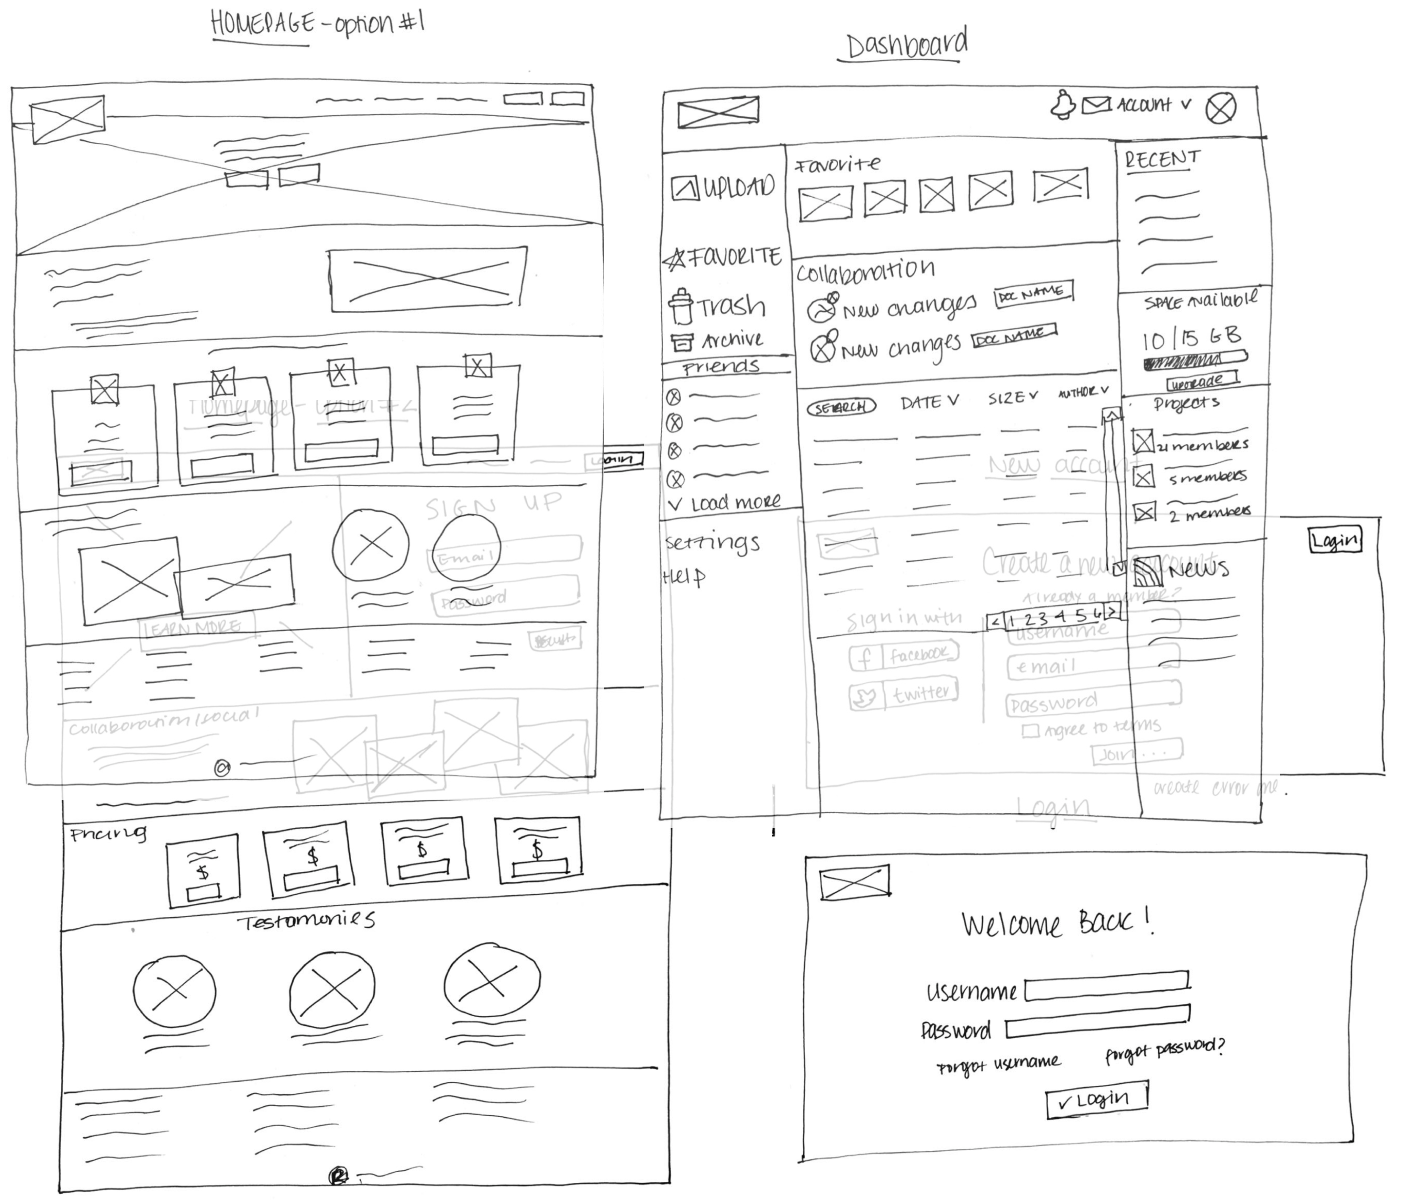 HOMEPAGE - option #1
Homepage - option #2
Login
SIGN UP
Email
Password
LEARN MORE
Collaboration/social
Pricing
$
$
$
$
Testamonies
Dashboard
ACCOUNT
UPLOAD
FAVORITE
Trash
Archive
Friends
Load more
Settings
Help
Favorite
Collaboration
New changes DOC NAME
New changes DOC NAME
SEARCH DATE SIZE AUTHOR
< 1 2 3 4 5 6 >
RECENT
SPACE Available
10/15 GB
upgrade
Projects
21 members
5 members
2 members
NEWS
New account
Login
Create a new account
Already a member?
Sign in with
f facebook
twitter
username
email
password
Agree to terms
Join...
create error me.
Login
Welcome Back!
username
Password
Forgot username forgot password?
✓ Login